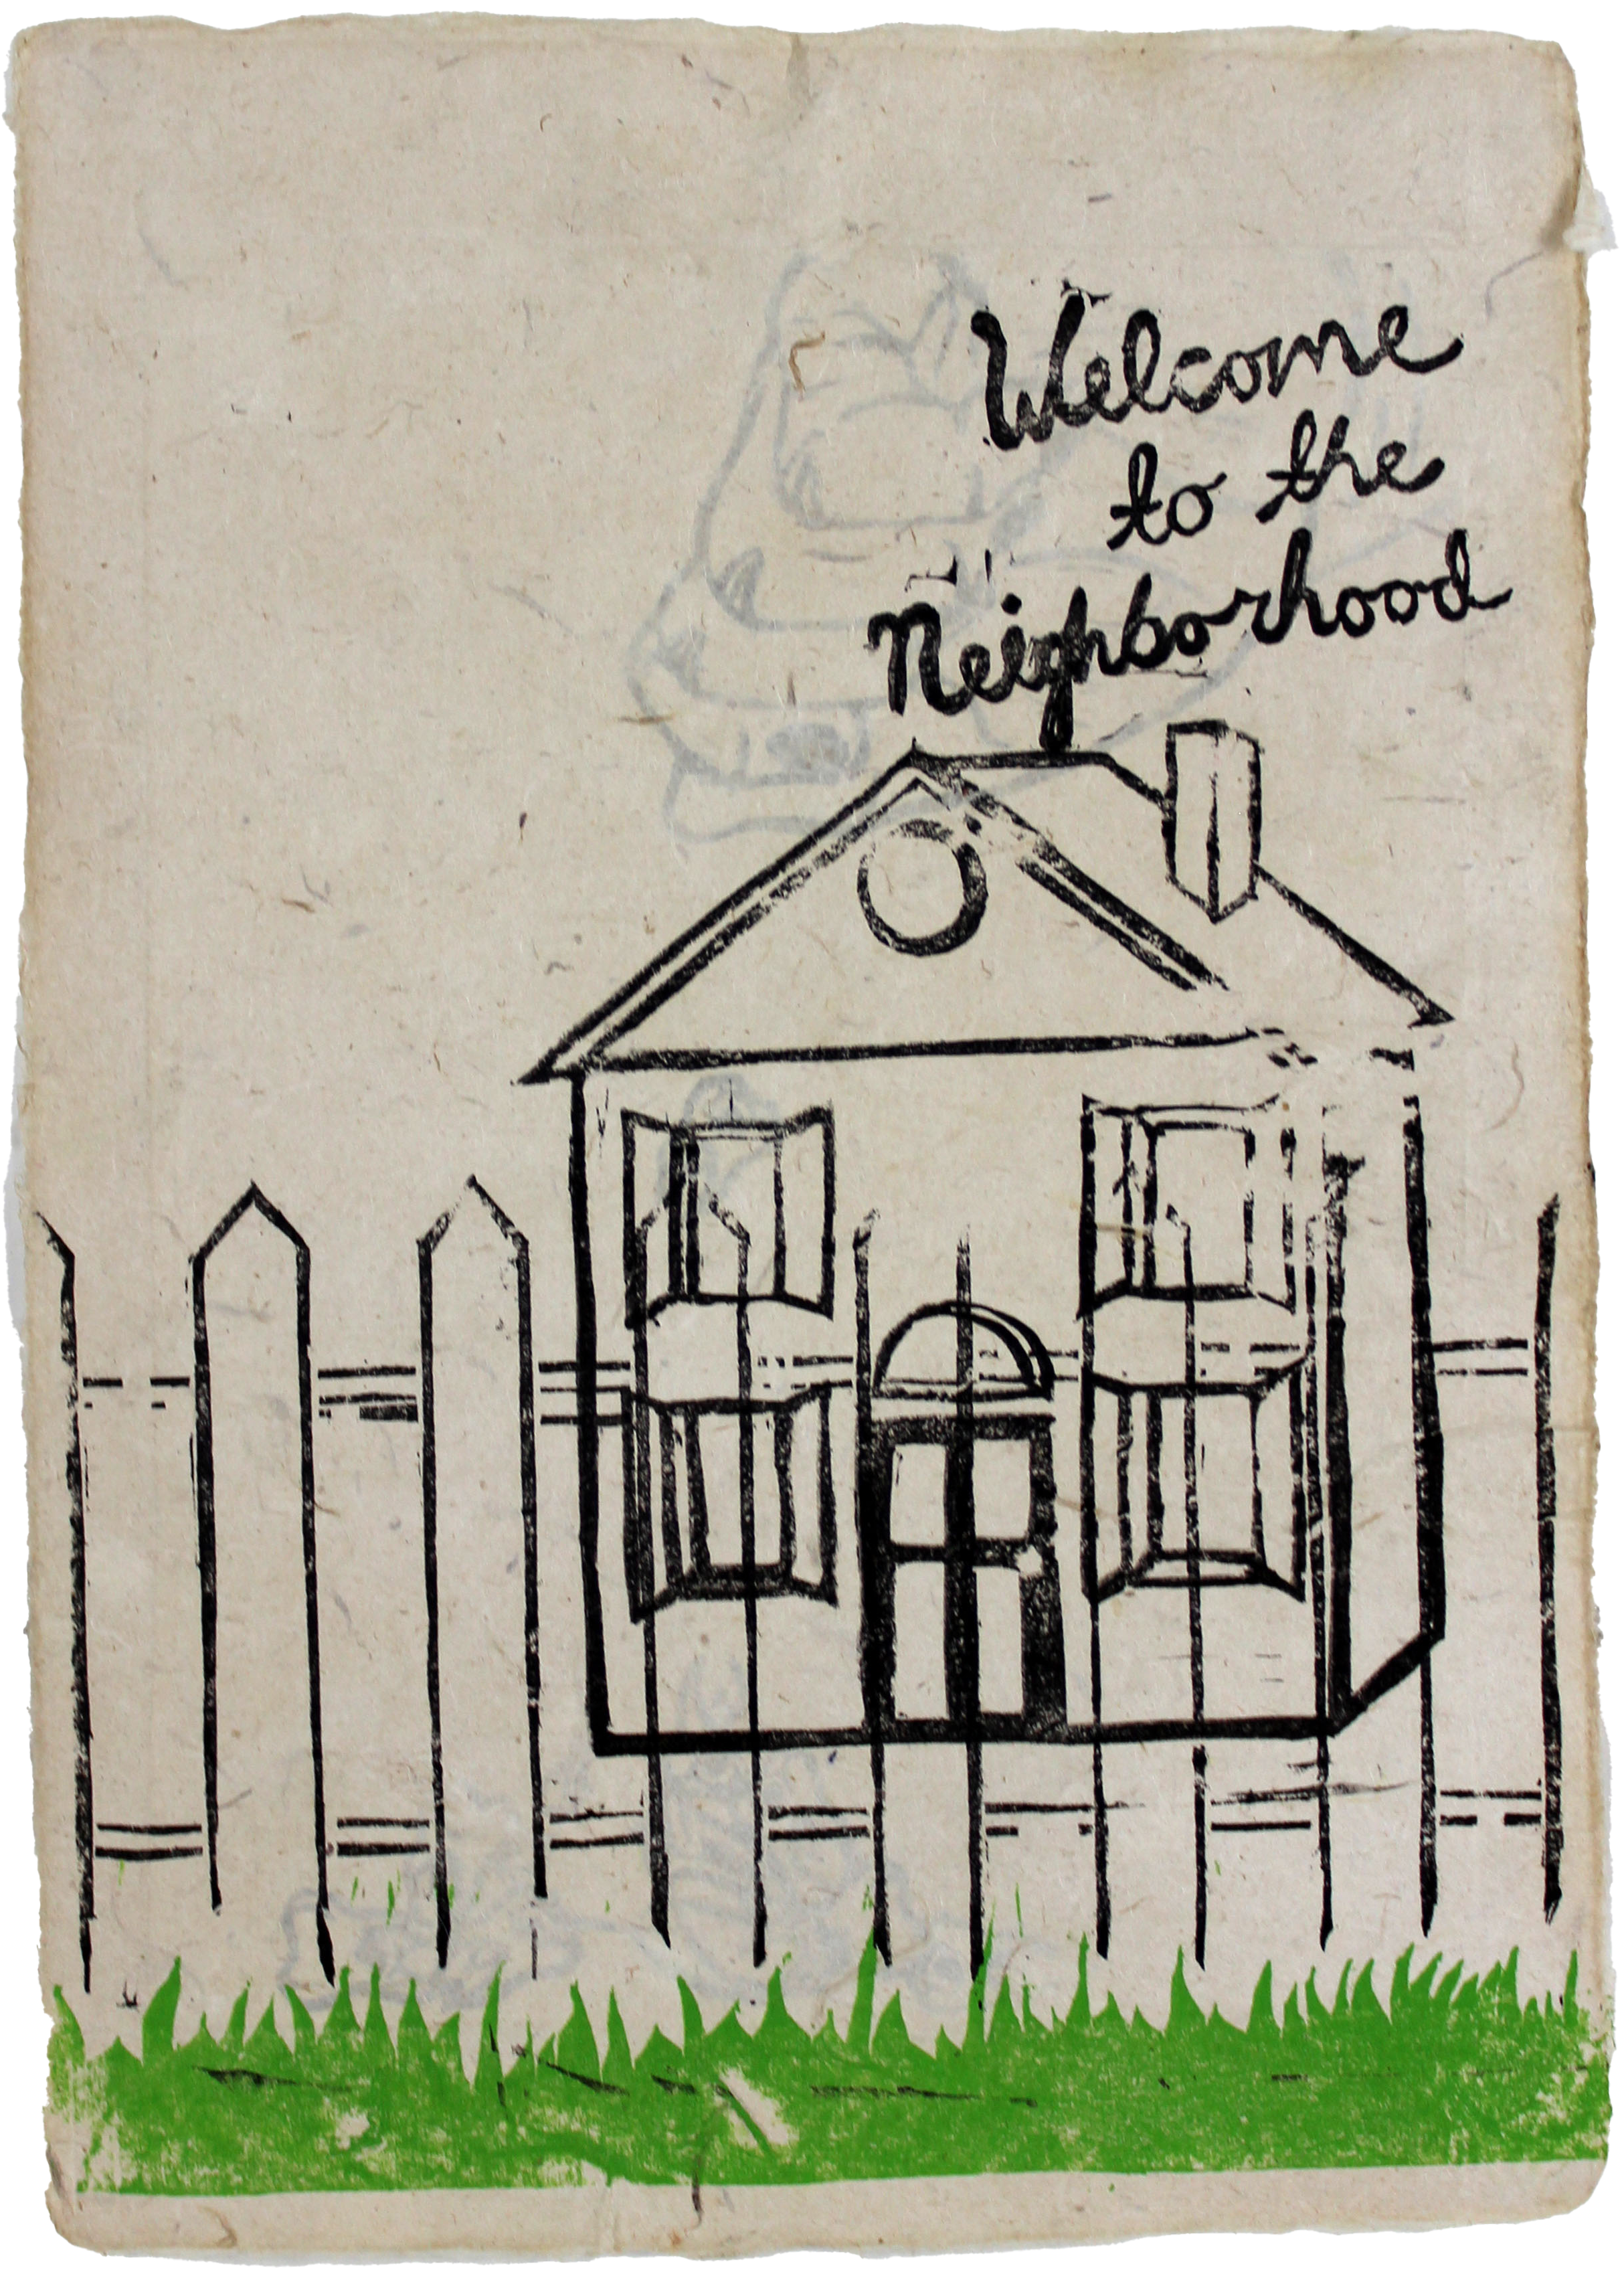 Welcome
to the
Neighborhood